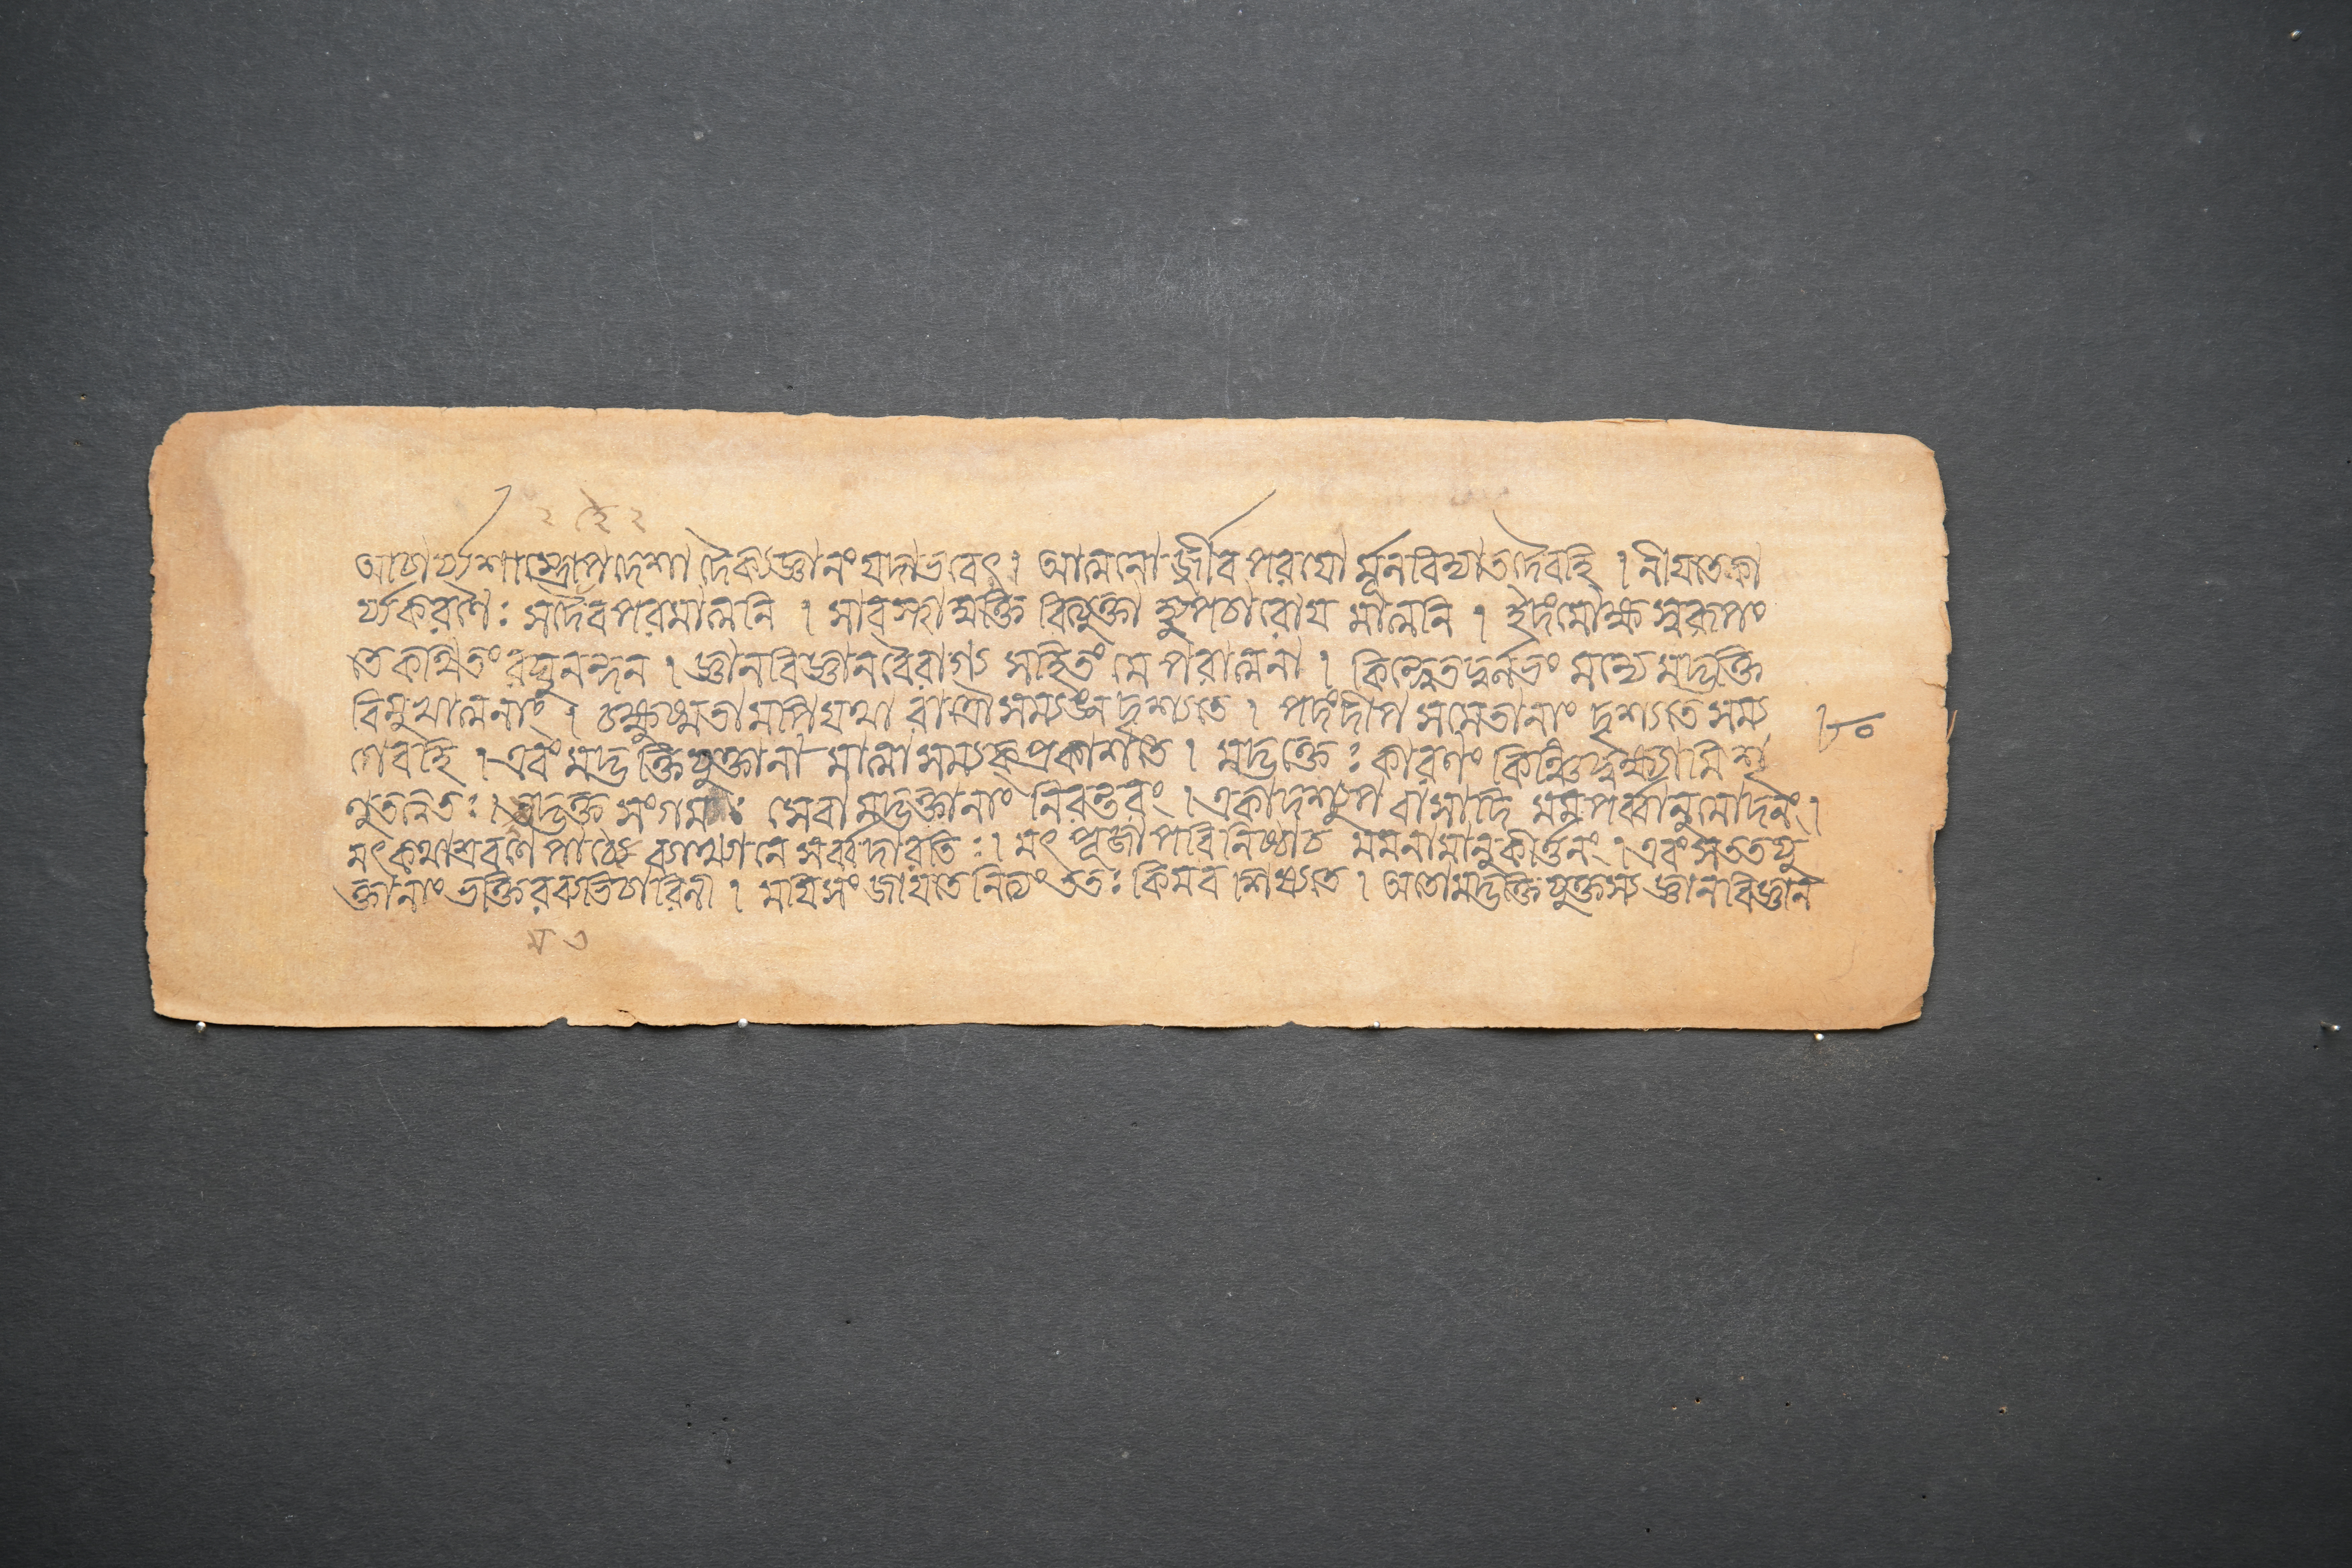 ২ ঙে ২
আচার্য্যশাস্ত্রোপদেশা দৈক্যজ্ঞানং যদাভবেৎ। আত্মনো র্জীব পরযো র্মূলাবিদ্যাতদৈবহি । লীযতেকা
র্য্যকরণৈঃ সদৈবপরমাত্মনি । সাবস্হামুক্তি রিত্যুক্তা হ্যুপচারোয মাত্মনি । ইদংমোক্ষ স্বরূপং
তে কথিতং রঘুনন্দন । জ্ঞানবিজ্ঞানবৈরাগ্য সহিতং মে পরাত্মনা । কিন্ত্বেতদ্দুর্লভং মন্যে মদ্ভক্তি
বিমুখাত্মনাং । চক্ষুষ্মতা মপিযথা রাত্রৌসম্যঙ্ন দৃশ্যতে । পদংদীপ সমেতানাং দৃশ্যতে সম্য
গেবহি । এবং মদ্ভক্তিযুক্তানা মাত্মাসম্যক্ প্রকাশতে । মদ্ভক্তেঃ কারণং কিঞ্চিদ্বক্ষ্যামি শৃ
ণুতত্ত্বতঃ । মদ্ভক্ত সংগমঃ সেবা মদ্ভক্তানাং নিরন্তরং । একাদশ্যুপ বাসাদি মমপর্ব্বানুমোদনং ।
মৎকথাশ্রবণে পাঠে ব্যাখ্যানে সর্ব্বদারতিঃ । মৎ পূজাপরিনিষ্ঠাচ মমনামানুকীর্ত্তনং । এবং সততযু
ক্তানাং ভক্তিরব্যভিচারিনী । মযিসং জাযতেনিত্যং ততঃ কিমব শিষ্যতে । অতোমদ্ভক্তিযুক্তস্য জ্ঞানবিজ্ঞান
৮০
ম ৩